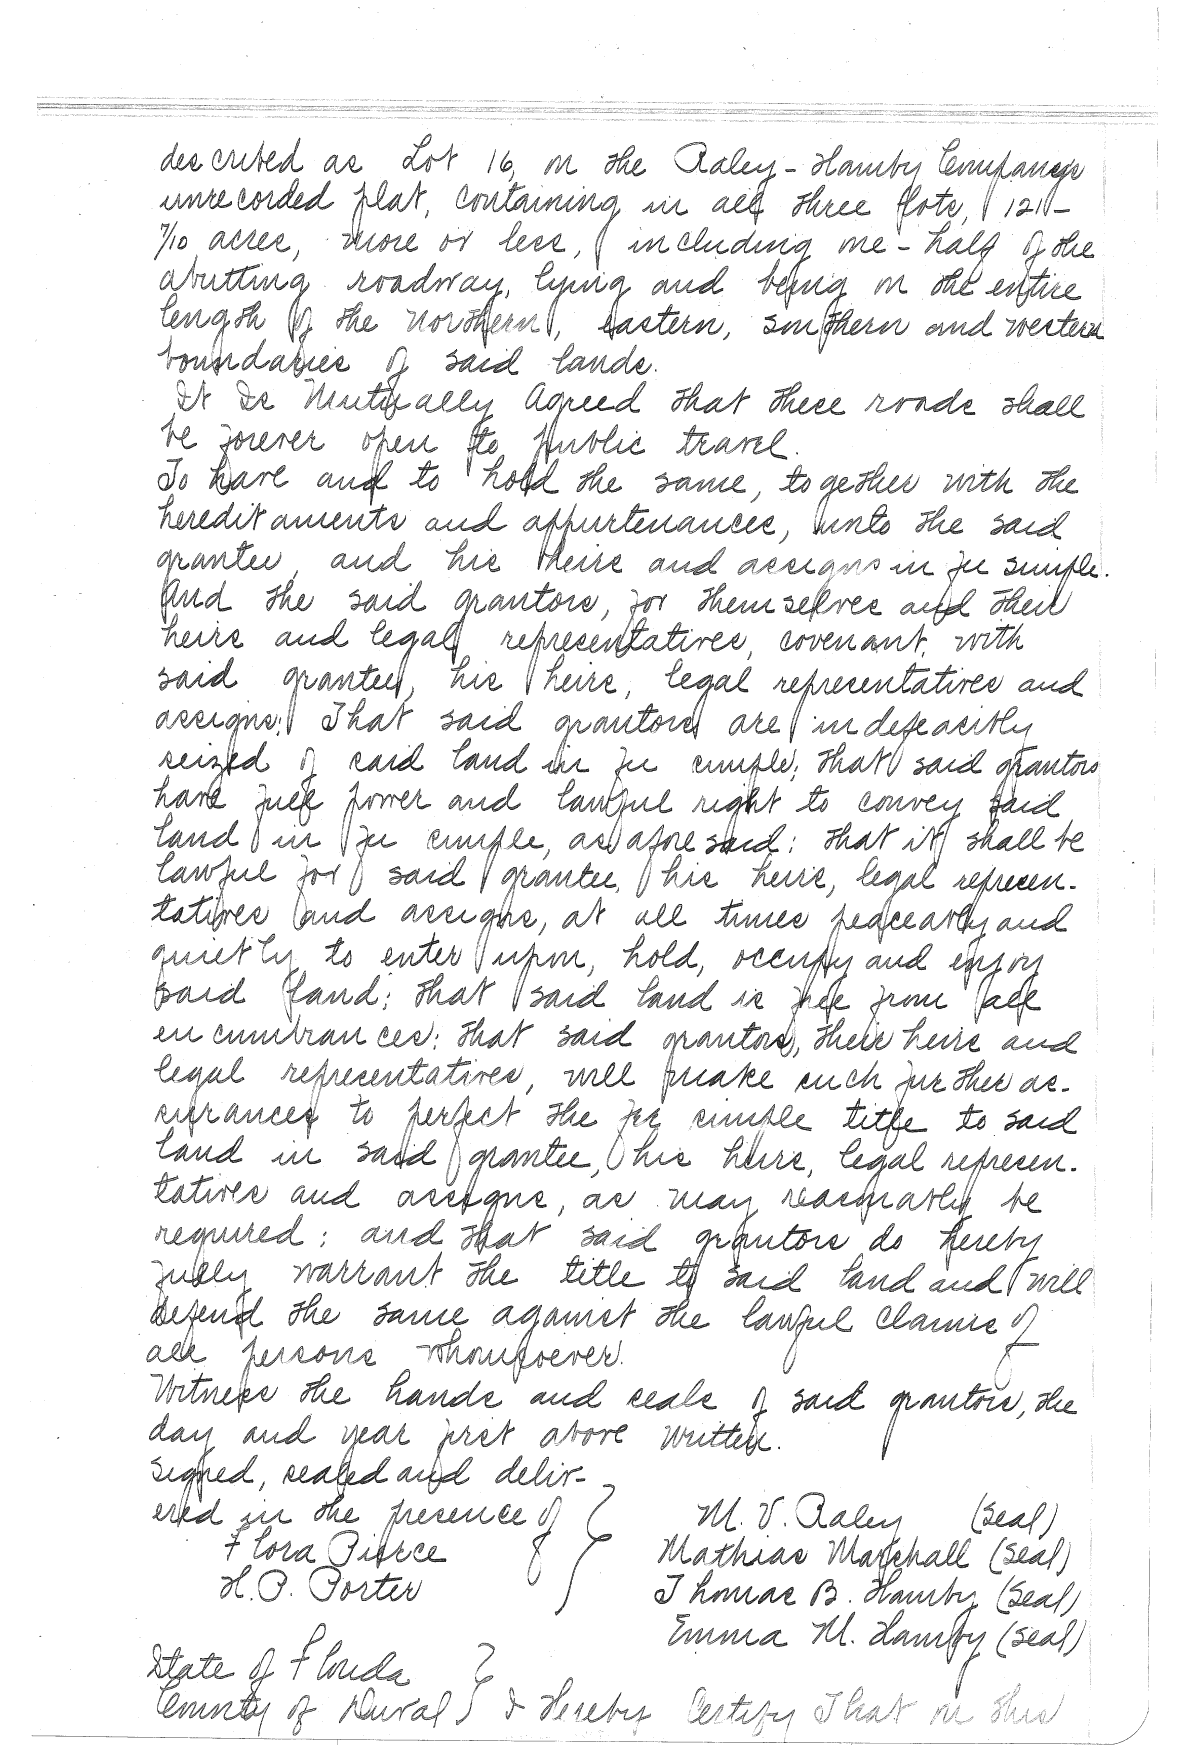 described as Lot 16, on the Raley-Hamby Company's
unrecorded plat, containing in all three lots, 121-
7/10 acres, more or less, including one-half of the
abutting roadway, lying and being on the entire
length of the northern, eastern, southern and western
boundaries of said lands.
It Is Mutually Agreed that these roads shall
be forever open to public travel.
To have and to hold the same, together with the
hereditaments and appurtenances, unto the said
grantee, and his heirs and assigns in fee simple.
And the said grantors, for themselves and their
heirs and legal representatives, covenant, with
said grantee, his heirs, legal representatives and
assigns: That said grantors are indefeasibly
seized of said land in fee simple; that said grantors
have full power and lawful right to convey said
land in fee simple, as aforesaid: that it shall be
lawful for said grantee, his heirs, legal represen-
tatives and assigns, at all times peaceably and
quietly to enter upon, hold, occupy and enjoy
said land: that said land is free from all
encumbrances: that said grantors, their heirs and
legal representatives, will make such further as-
surances to perfect the fee simple title to said
land in said grantee, his heirs, legal represen-
tatives and assigns, as may reasonably be
required: and that said grantors do hereby
fully warrant the title to said land and will
defend the same against the lawful claims of
all persons whomsoever.
Witness the hands and seals of said grantors, the
day and year first above written.
Signed, sealed and deliv-
ered in the presence of
M. V. Raley (Seal)
Flora Pierce
Mathias Marshall (Seal)
H. P. Porter
Thomas B. Hamby (Seal)
Emma M. Hamby (Seal)
State of Florida
County of Duval } I Hereby Certify That on this